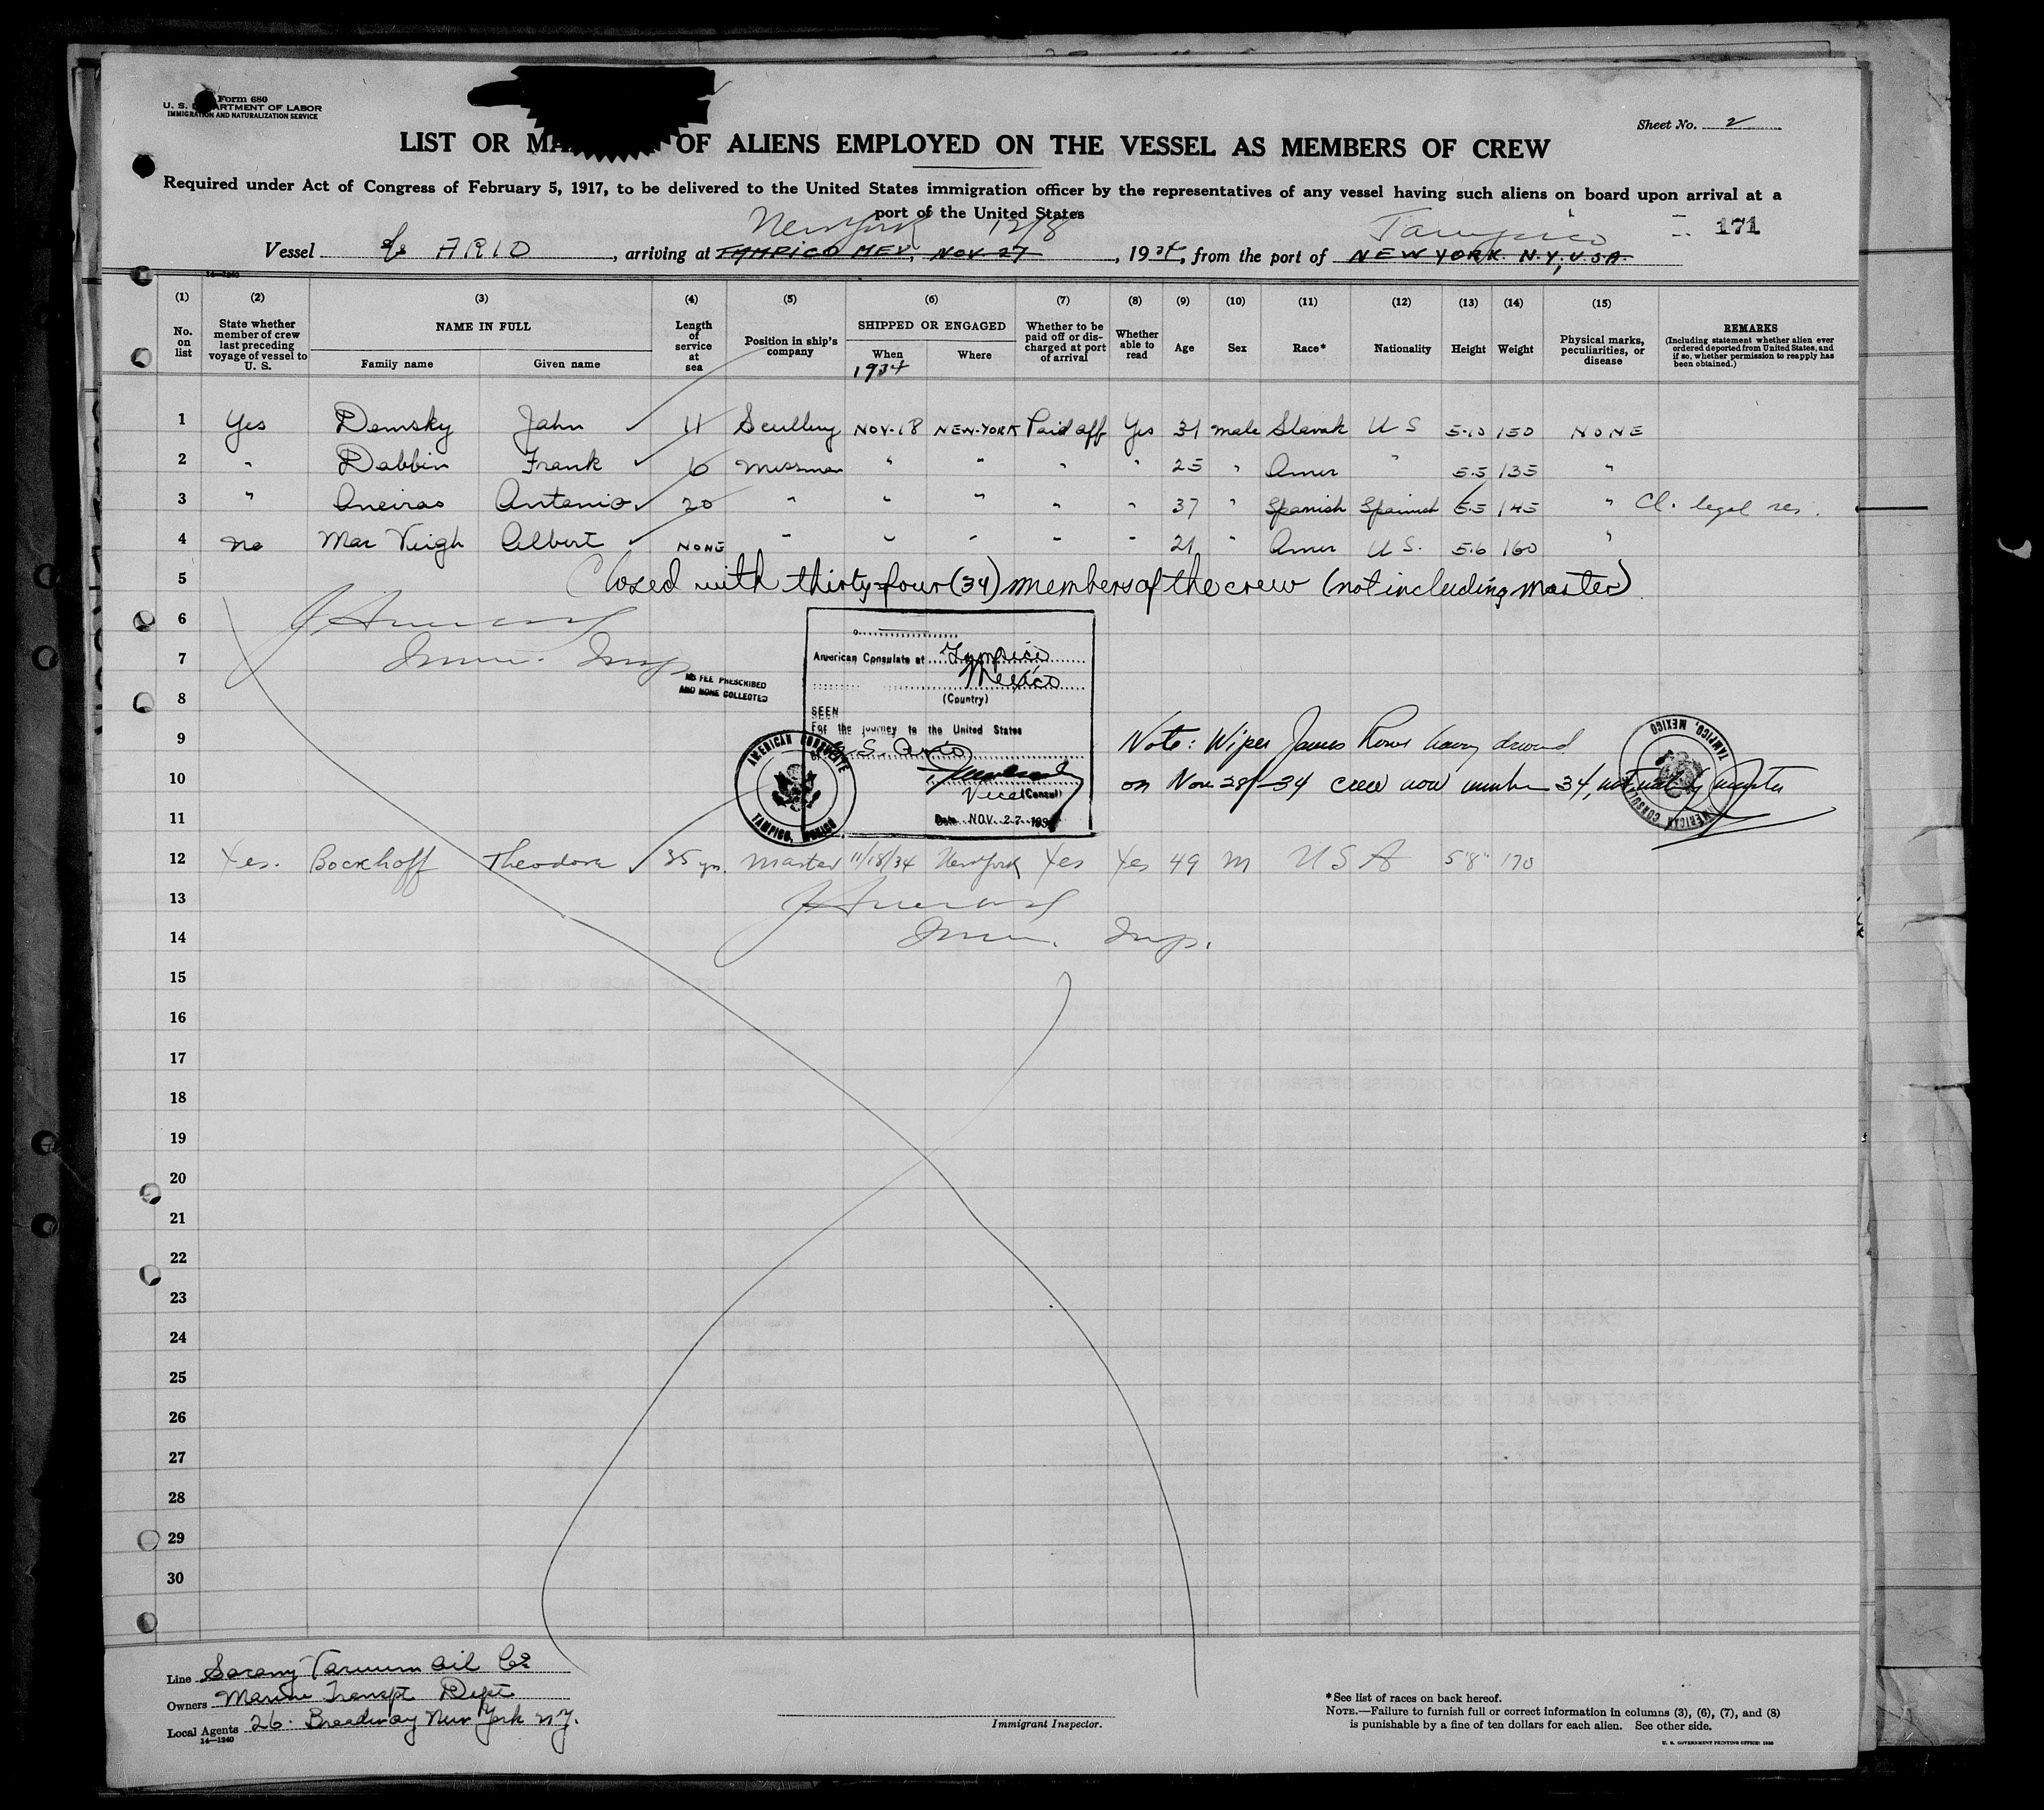 Form 680
U. S. DEPARTMENT OF LABOR
IMMIGRATION AND NATURALIZATION SERVICE
Sheet No. 2
LIST OR MA OF ALIENS EMPLOYED ON THE VESSEL AS MEMBERS OF CREW
Required under Act of Congress of February 5, 1917, to be delivered to the United States immigration officer by the representatives of any vessel having such aliens on board upon arrival at a
port of the United States
New York 12/8 Tampico 171
Vessel S/S ARIO, arriving at TAMPICO MEX, NOV-27, 1934, from the port of NEW YORK. N.Y, U.S.A.
14-1240
(1) (2) (3) (4) (5) (6) (7) (8) (9) (10) (11) (12) (13) (14) (15)
No. on list
State whether member of crew last preceding voyage of vessel to U. S.
NAME IN FULL
Family name Given name
Length of service at sea
Position in ship's company
SHIPPED OR ENGAGED
When Where
1934
Whether to be paid off or discharged at port of arrival
Whether able to read
Age Sex Race* Nationality Height Weight
Physical marks, peculiarities, or disease
REMARKS
(Including statement whether alien ever ordered deported from United States, and if so, whether permission to reapply has been obtained.)
1 Yes Demsky John 11 Scullery NOV-18 NEW-YORK Paid off Yes 31 male Slavak U S 5-10 150 NONE
2 " Dabbin Frank 6 Messman " " " " 25 " Amer " 5.5 135 "
3 " Aneiros Antonio 20 " " " " " 37 " Spanish Spanish 5.5 145 " Cl. legal res.
4 No Mac Veigh Albert NONE " " " " " 21 " Amer U S. 5.6 160 "
5 Closed with thirty-four (34) members of the crew (not including master)
6
7 Imm. Insp.
8
9
10
11
NO FEE PRESCRIBED
AND NONE COLLECTED
American Consulate at Tampico
Mexico
(Country)
SEEN
For the journey to the United States
S. S. Ario
Vice (Consul)
Date NOV. 27 1934
AMERICAN CONSULATE
TAMPICO, MEXICO
Note: Wiper James Rowe having drowned
on Nov 28/-34 crew now number 34, not including master
AMERICAN CONSULATE
TAMPICO, MEXICO
12 Yes. Bockhoff Theodore 35 yrs. Master 11/18/34 New York Yes Yes 49 M U S A 5'8" 170
13
14 Imm. Insp.
15
16
17
18
19
20
21
22
23
24
25
26
27
28
29
30
Line Socony-Vacuum Oil Co
Owners Marine Transpt. Dept
Local Agents 26. Broadway New York N.Y.
14—1240
Immigrant Inspector.
*See list of races on back hereof.
NOTE.—Failure to furnish full or correct information in columns (3), (6), (7), and (8)
is punishable by a fine of ten dollars for each alien. See other side.
U. S. GOVERNMENT PRINTING OFFICE: 1933